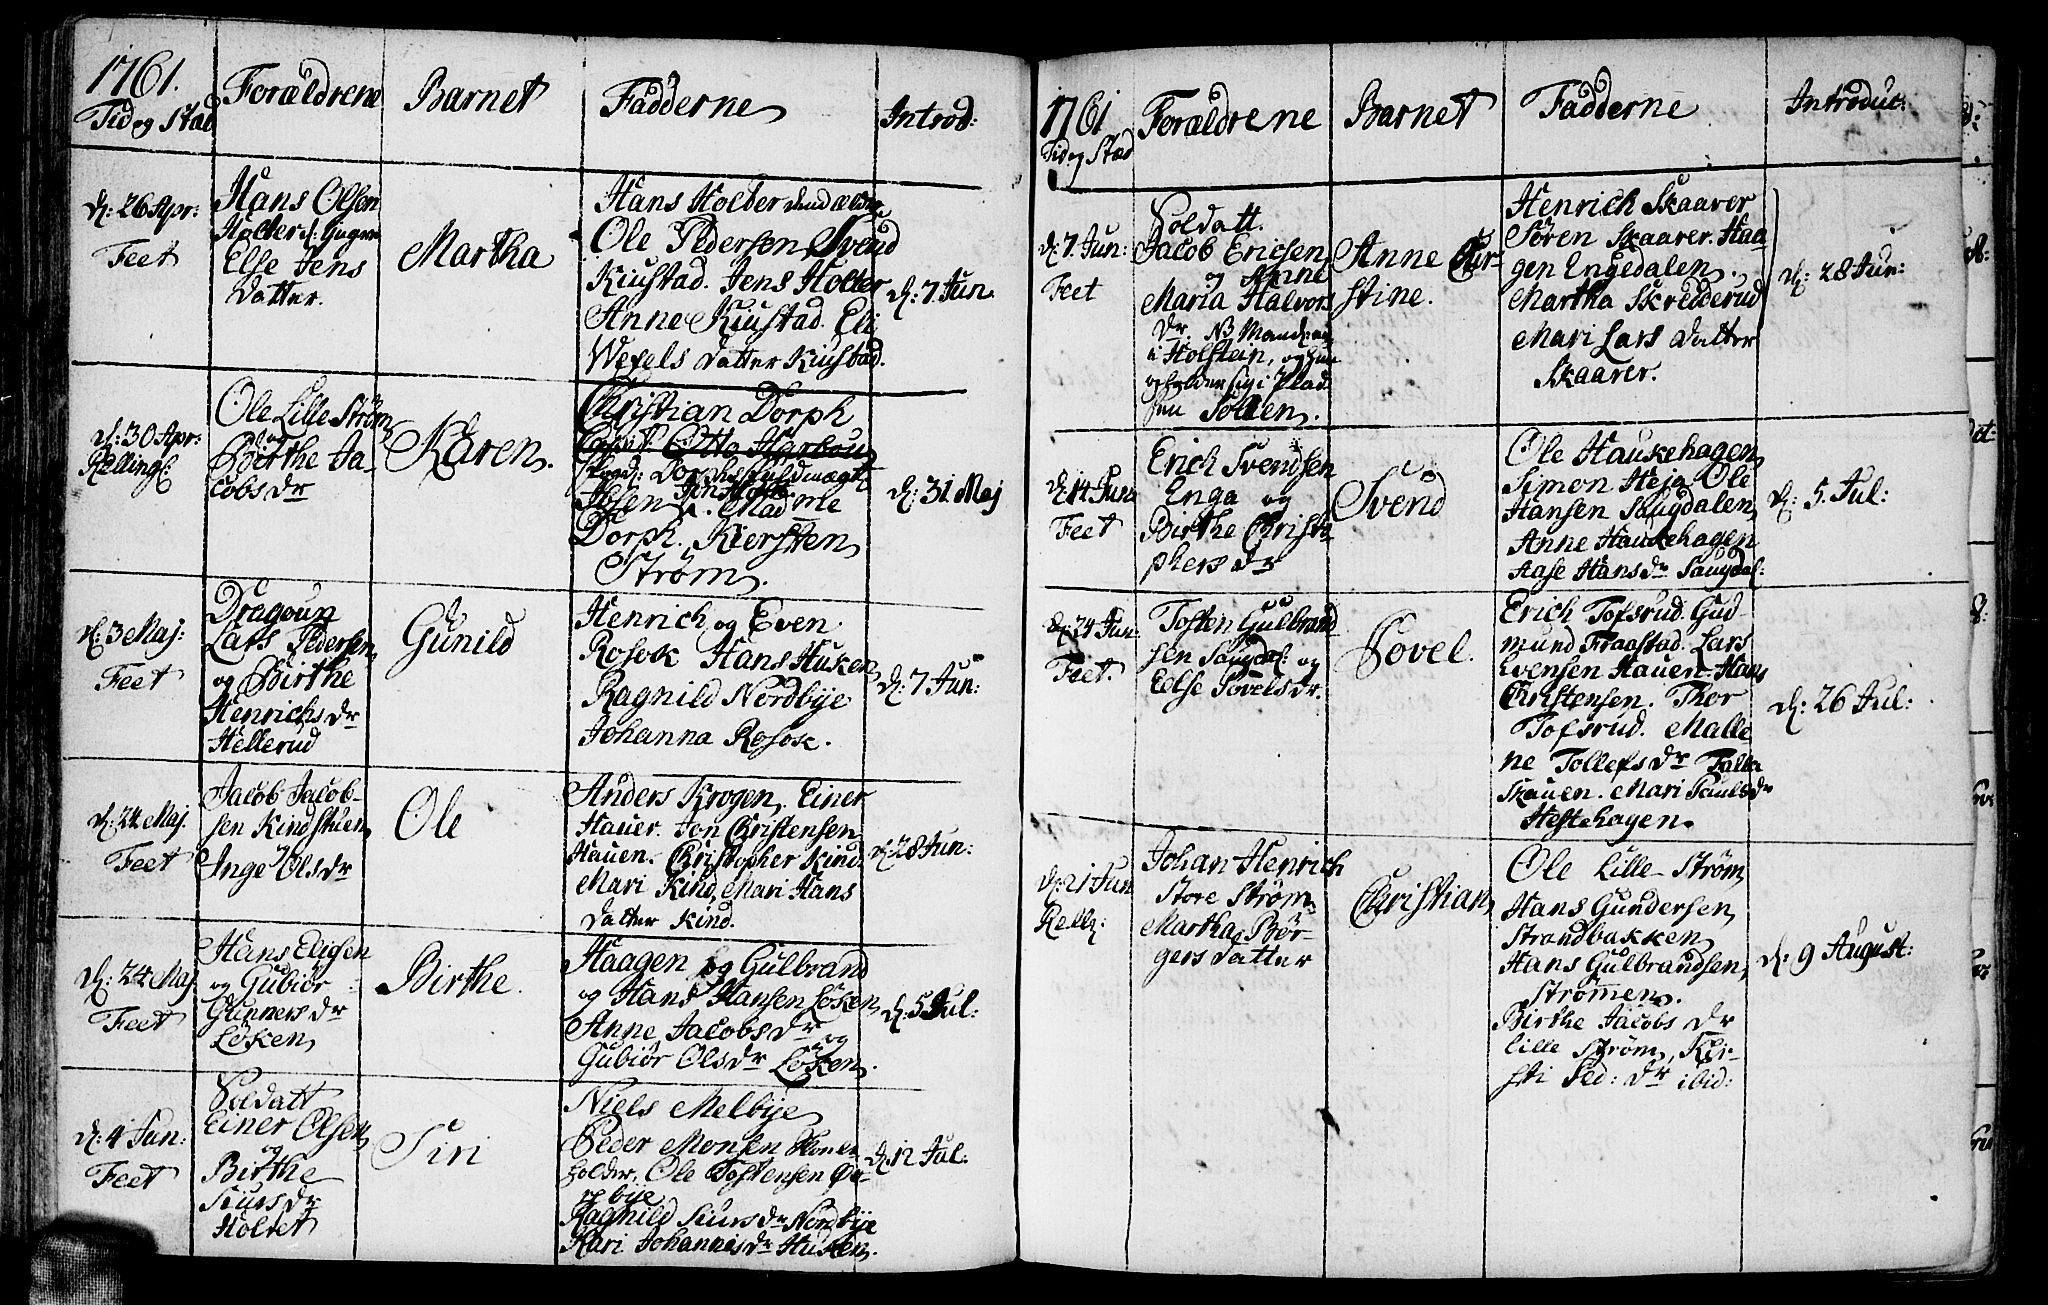 1761.
Tid og Stæd
Forældrene
Barnet
Fadderne
Introd:
d: 26 Apr:
Feet
Hans Olsen
Holter
Else Jens
datter.
Martha
Hans Holter dend ældre
Ole Pedersen, Svend
Kiustad. Jens Holter
Anne Kiustad. Eli
Wexels datter Kiustad.
d: 7 Jun.
d: 30 Apr:
Relling:
Ole Lille Strøm
og
Birthe Ja-
cobs dr
Karen.
Christian Dorph
Otto Harbou
Dorphs fuldmægt:
Jesen Mad me
Dorph. Kiersten
Strøm.
d: 31 Maj
d: 3 Maj:
Feet
Dragoun
Lars Pedersen,
og Birthe
Henrichs dr
Hellerud
Gunild
Henrich og Even
Rosok Hans Husken,
Ragnild Nordbye
Johanna Rosok.
d: 7 Jun:
d: 24 Maj.
Feet
Jacob Jacob-
sen Kindstuen,
Inge Ols dr
Ole
Anders Krogen. Einer
Hauer. Jon Christensen
Hauen. Christopher Kind.
Mari Kind, Mari Hans
datter Kind.
d: 28 Jun:
d: 24 Maj
Feet
Hans Eligsen
og Gubiør
Gunners dr
Løken,
Birthe.
Haagen og Gulbrand
og Hans Hansen Løken,
Anne Jacobs dr og
Gubiør Ols dr Løken.
d: 5 Jul:
d: 4 Jun:
Feet
Soldatt
Einer Olsen,
og
Birthe
Siurs dr
Holtet
Siri
Niels Melbye,
Peder Monsen Skoele
holder, Ole Tostensen Øe-
bye
Ragnild Siurs dr Nordbye
Kari Johannis dr Husken.
d: 12 Jul:
1761
Tid og Stæd
Forældrene
Barnet
Fadderne
Introduc:
d: 7 Jun:
Feet
Soldatt.
Jacob Ericsen,
og Anne
Maria Halvors
dr NB Manden er
i Holstein, og hun
opholder sig i Plad-
sen Tollen.
Anne Chir-
stine.
Henrich Skaarer
Søren Skaarer. Haa-
gen Engedalen.
Martha Skredderud
Mari Lars datter
Skaarer.
d: 28 Jun:
d: 14 Jun:
Feet
Erich Svendsen
Enga og
Birthe Christo-
phers dr
Svend
Ole Haukehagen,
Simon Heja. Ole
Hansen Saugdalen,
Anne Haukehagen
Aase Hans dr Saugdal:
d: 5. Jul:
d: 24 Jun:
Feet.
Tosten Gulbrand
sen Saugdal: og
Eelse Povels dr.
Povel.
Erich Tofsrud. Gud-
mund Fraastad. Lars
Evensen Hauer. Hans
Christensen. Thor
Tofsrud. Malle-
ne Tollefs dr Falke
Skauen. Mari Pauls dr
Hestehagen.
d: 26 Jul:
d: 21 Jun
Rellg:
Johan Henrich
Store Strøm
Martha Bør-
gers datter
Christian,
Ole Lille Strøm,
Hans Gundersen,
Strandbakken,
Hans Gulbrandsen,
Strømmen.
Birthe Jacobs dr
Lille Strøm, Kir-
sti Ped: dr ibid:
d: 9 August: